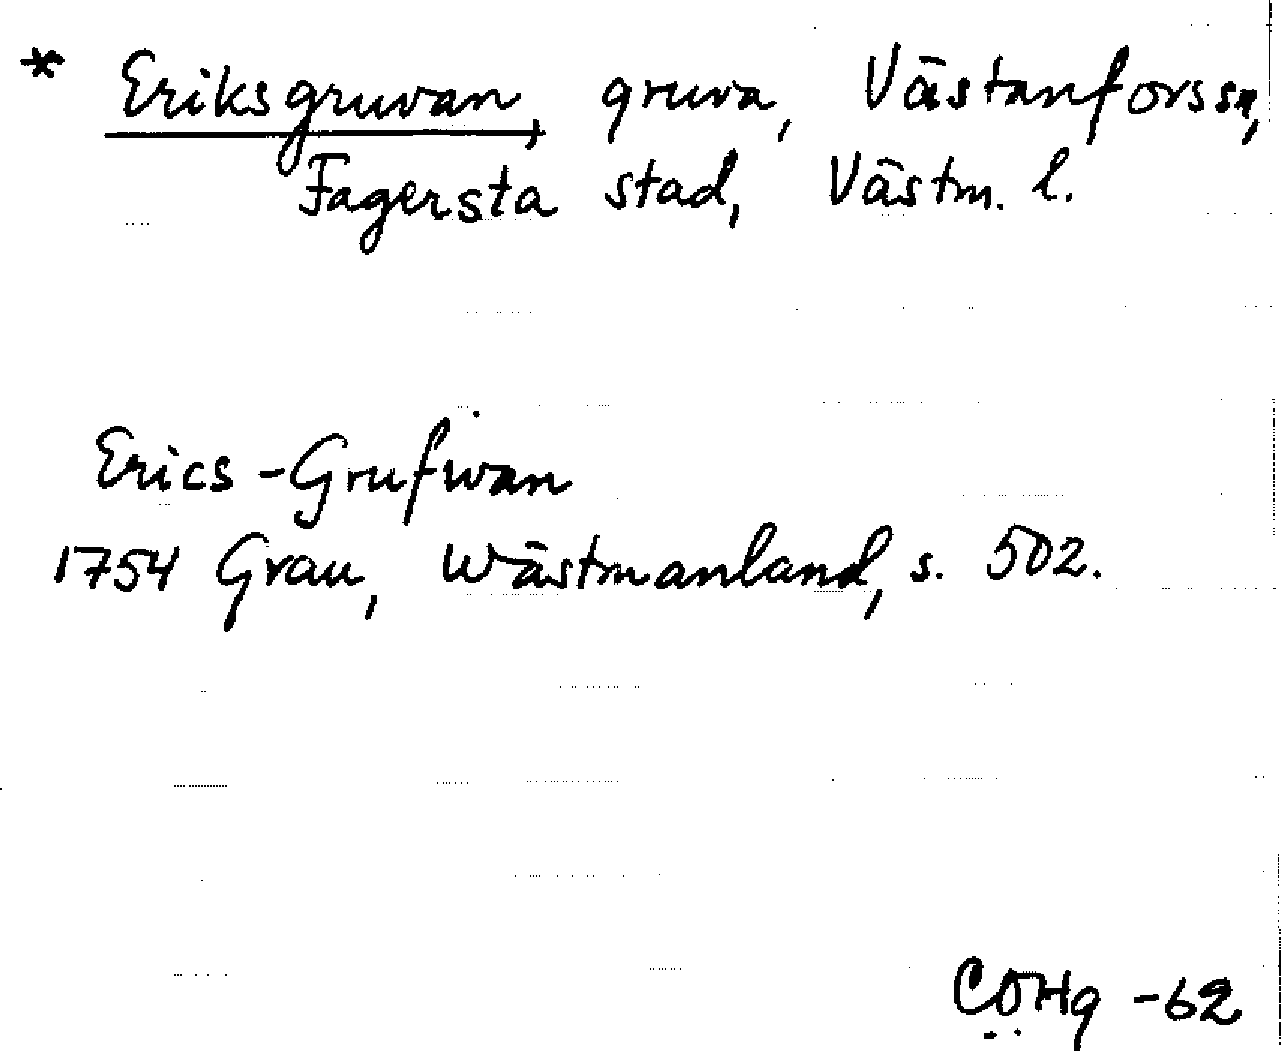 * Eriksgruvan, gruva, Västanfors sn,
Fagersta stad, Västm. l.
Erics-Grufwan
1754 Grau, Wästmanland, s. 502.
CÖHg -62